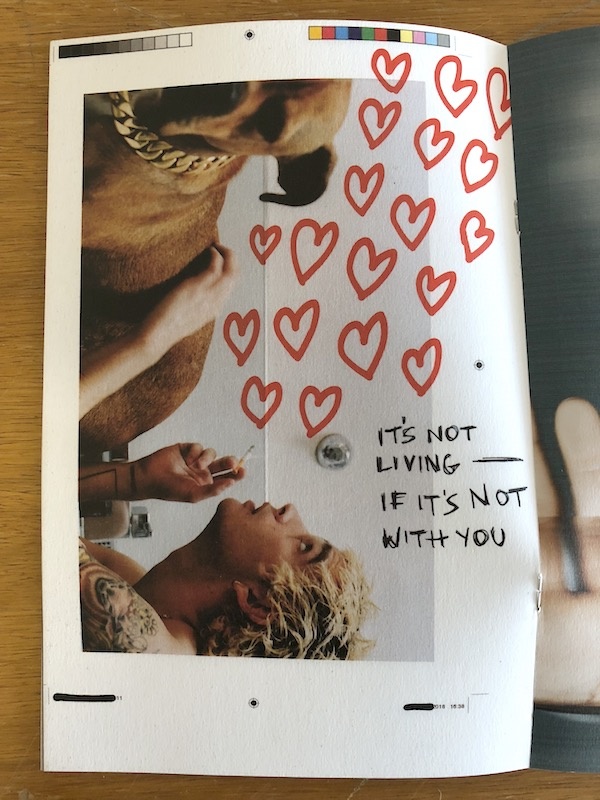 IT'S NOT
LIVING —
IF IT'S NOT
WITH YOU
11
2018 16:38